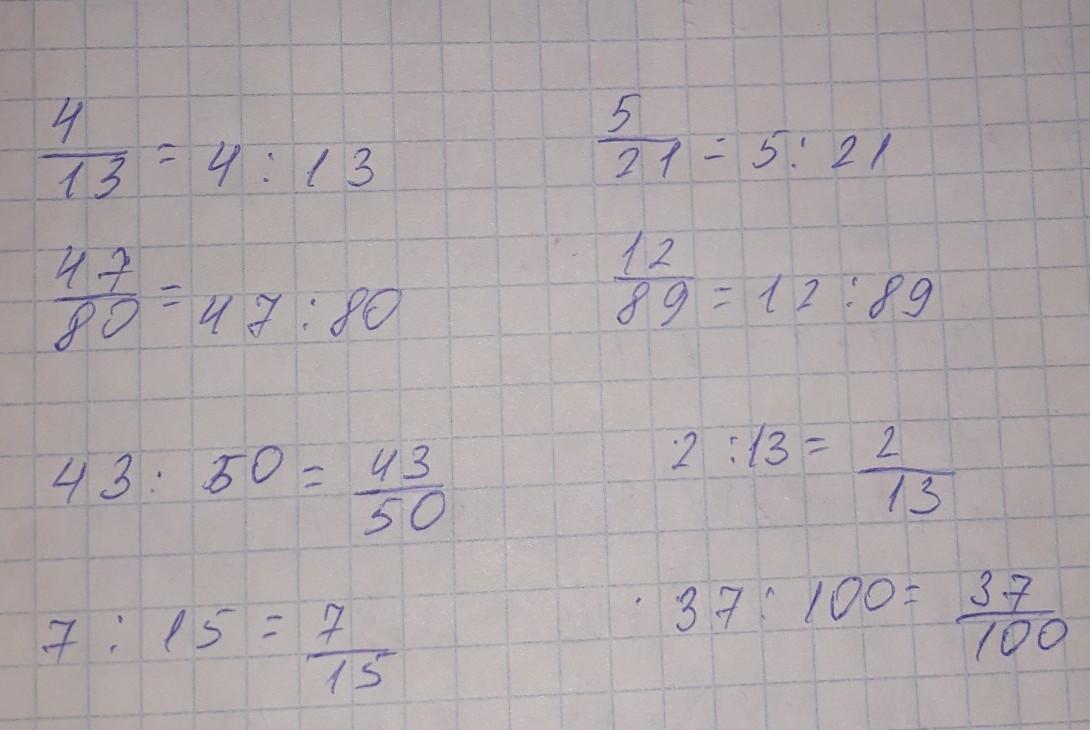 4/13 = 4 : 13    5/21 = 5 : 21
47/80 = 47 : 80    12/89 = 12 : 89
43 : 50 = 43/50    2 : 13 = 2/13
7 : 15 = 7/15    37 : 100 = 37/100